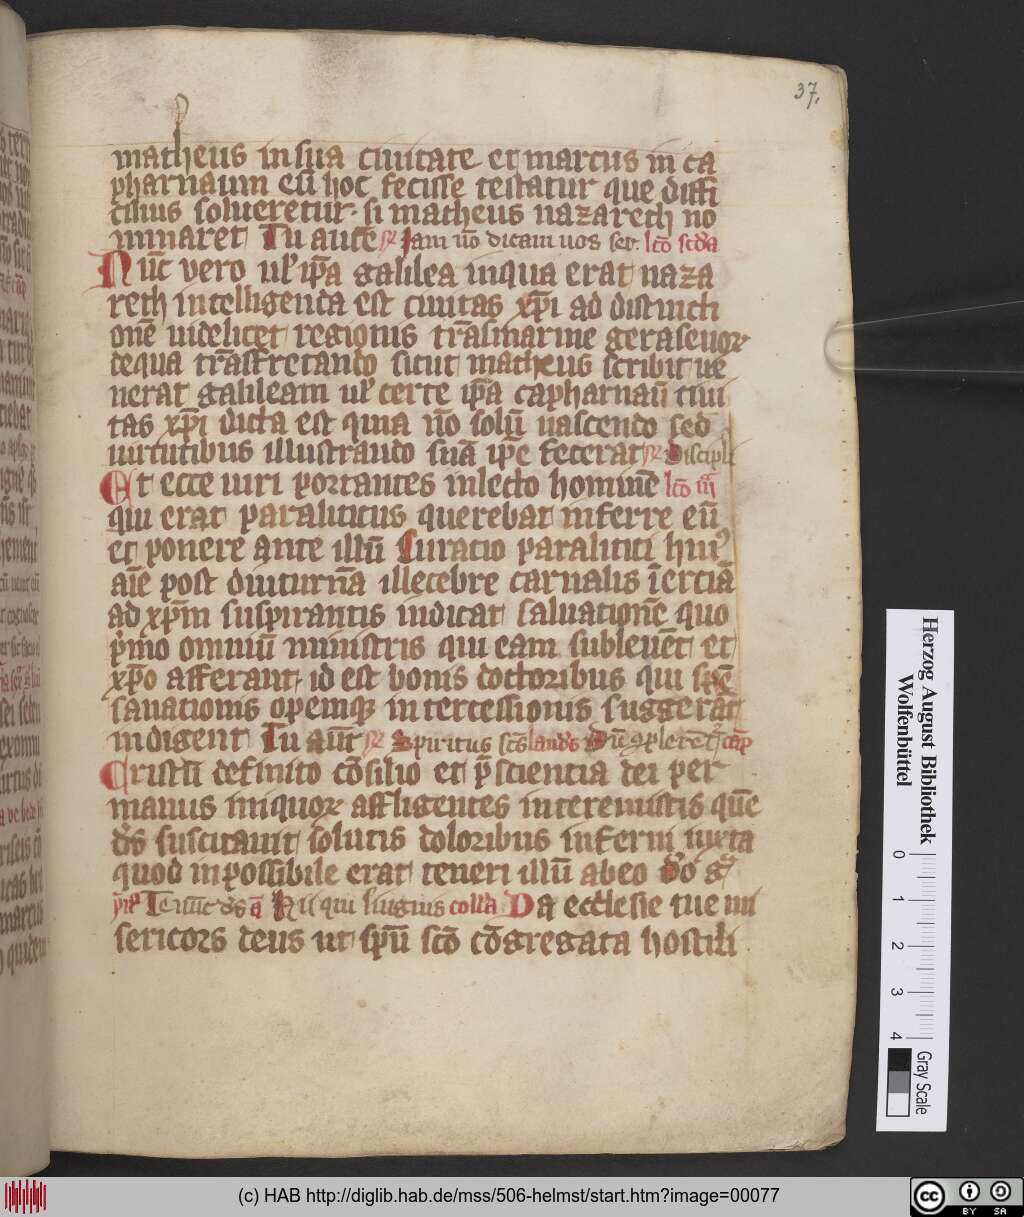 37,
matheus in sua ciuitate et marcus in ca
pharnaum eū hoc fecisse testatur que diffi
cilius solueretur. si matheus nazareth no
minaret Tu autē Jam nō dicam uos ser. lc̄o scd̄a
Nūc vero ul' ip̄a galilea in qua erat naza
reth intelligenda est ciuitas xp̄i ad distincti
onē uidelicet regionis trāsmarine geraseuor
de qua trāsfretando sicut matheus scribit ue
nerat galileam ul' certe ip̄a capharnaū ciui
tas xp̄i dicta est quia nō solū nascendo sed
uirtutibus illustrando suā ip̄e fecerat Discipli
Et ecce uiri portantes in lecto hominē lc̄o iij
qui erat paraliticus querebat inferre eū
et ponere ante illū Curatio paralitici hui9
aīe post diuturnā illecebre carnalis īerciā
ad xp̄m suspirantis indicat saluationē quo
p'mo omniū ministris qui eam subleuēt et
xp̄o afferant. id est bonis doctoribus qui spē
sanationis opemq; intercessionis suggerāt
indigent Tu aūt Spiritus sc̄s laud's Dū 9plerēt' cap
Cristū definito cōsilio et p̄scientia dei per
manus iniquor affligentes interemistis quē
d's suscitauit solutis doloribus inferni iuxta
quod inpossibile erat teneri illū ab eo
Te nūc d's a Hii qui linguis coll'a Da ecclesie tue mi
sericors deus ut sp̄u sc̄o cōgregata hostili
Herzog August Bibliothek
Wolfenbüttel
0 1 2 3 4
Gray Scale
(c) HAB http://diglib.hab.de/mss/506-helmst/start.htm?image=00077
cc BY SA